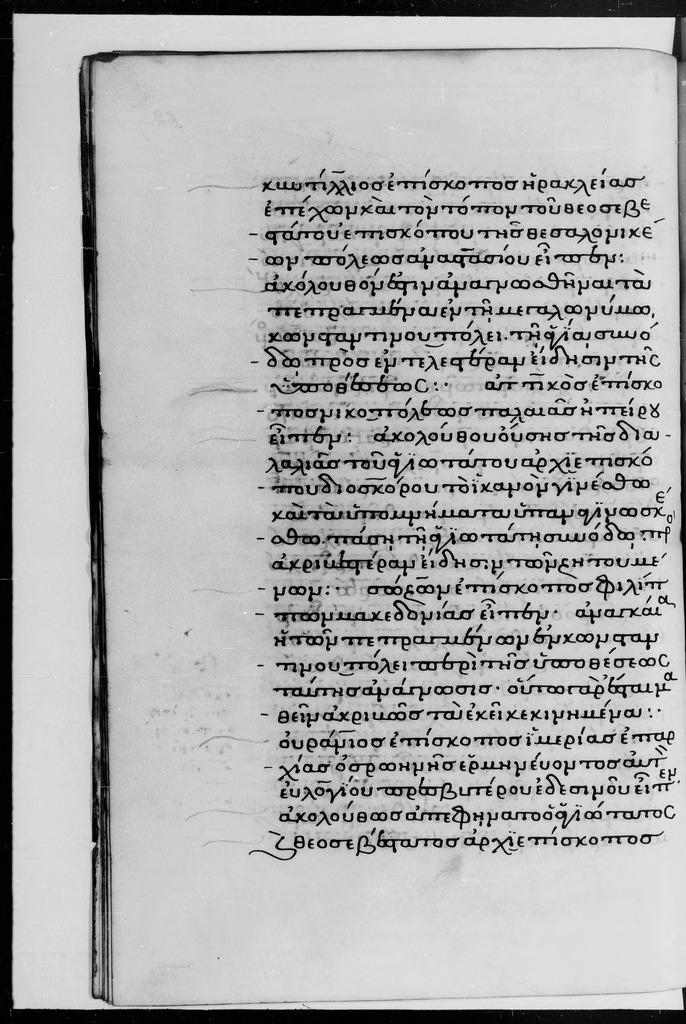 κυντίλλιος ἐπίσκοπος ἡρακλείας
ἐπέχων καὶ τὸν τόπον τοῦ θεοσεβε
στάτου ἐπισκόπου τῆς θεσαλονικέ
ων πόλεως ἀναστασίου εἶπεν:
ἀκόλουθόν ἐστιν ἀναγνωσθῆναι τὰ
πεπραγμένα ἐν τῇ μεγαλωνύμω,
κωνσταντινουπόλει. τῇ ἁγίᾳ συνό
δω πρὸς ἐντελεστέραν εἴδησιν τῆς
ὑποθέσεως:· ἀττικὸς ἐπίσκο
πος νικοπόλεως παλαιᾶς ἠπείρου
εἶπεν: ἀκολούθου οὔσης τῆς δια
λαλιᾶς τοῦ ἁγιωτάτου ἀρχιεπισκό
που διοσκόρου τὸ ἱκανὸν γινέσθω
καὶ τὰ ὑπομνήματα ὑπαναγινωσκέ
σθω. πάσῃ τῇ ἁγιωτάτῃ συνόδω πρ
ἀκριβεστέραν εἴδησιν τῶν ζητουμέ
νων:· σώζων ἐπίσκοπος φιλίπ
πων μακεδονίας εἶπεν· ἀναγκαία
ἡ τῶν πεπραγμένων ἐν κωνσταν
τινουπόλει περὶ τῆς ὑποθέσεως
ταύτης ἀνάγνωσις· οὕτω γὰρ ἔσται μα
θεῖν ἀκριβῶς τὰ ἐκεῖ κεκινημένα:·
οὐράνιος ἐπίσκοπος ἱμερίας ἐπαρ
χίας ὀσροηνῆς ἑρμηνεύοντος αὐτ
εὐλογίου πρεσβυτέρου ἐδεσινοῦ εἶπεν
ἀκολούθως ἀπεφήνατο ὁ ἁγιώτατος
ϗ θεοσεβέστατος ἀρχιεπίσκοπος